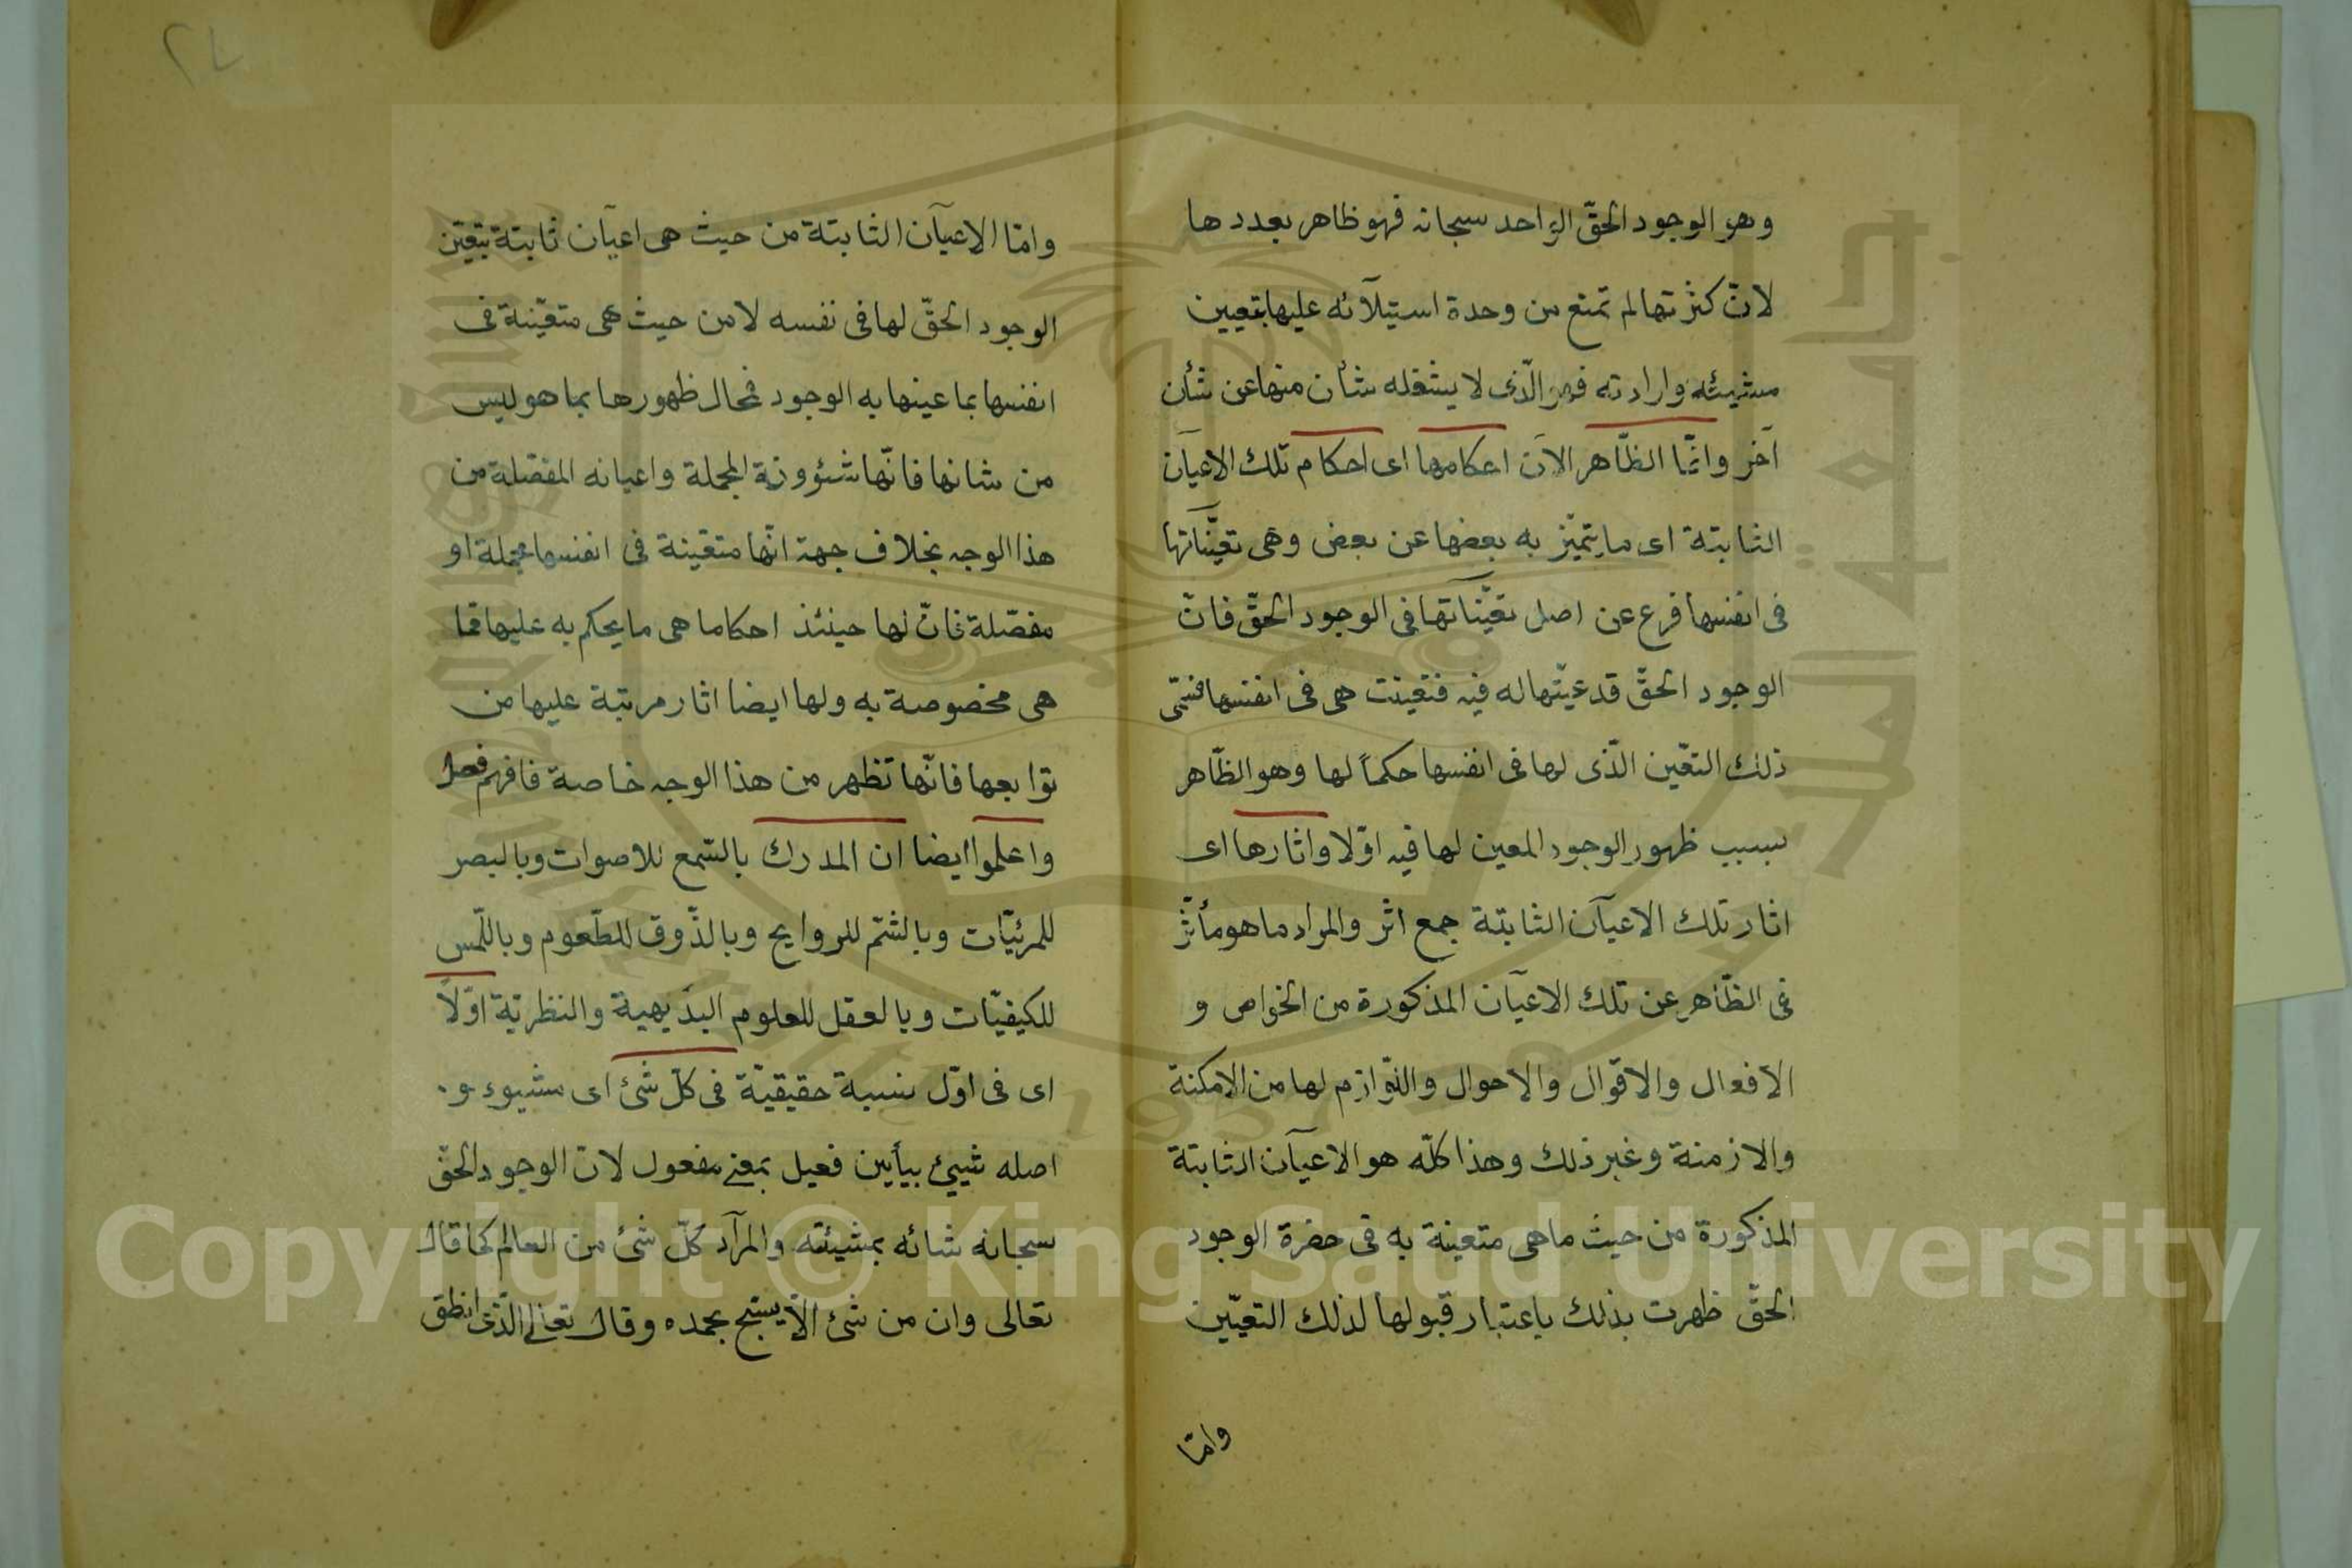 وهو الوجود الحقّ الواحد سبحانه فهو ظاهر بعددها
لانّ كثرتها لم تمنع من وحدة استيلآئه عليها بتعيين
مشيئته وارادته فهو الّذى لا يشغله شأن منها عن شأن
آخر وانّما الظّاهر الآن احكامها اى احكام تلك الاعيآن
الثابتة اى ما يتميّز به بعضها عن بعض وهى تعيّناتها
فى انفسها فرع عن اصل تعيّناتها فى الوجود الحقّ فانّ
الوجود الحقّ قد عيّنها له فيه فتعينت هى فى انفسها فسمّى
ذلك التعّين الّذى لها فى انفسها حكماً لها وهو الظّاهر
بسبب ظهور الوجود المعين لها فيه اوّلا واثارها اى
اثار تلك الاعيآن الثابتة جمع اثر والمراد ما هو مأثّر
فى الظّاهر عن تلك الاعيآن المذكورة من الخواص و
الافعال والاقوال والاحوال واللّوازم لها من الامكنة
والازمنة وغير ذلك وهذا كلّه هو الاعيآن الثابتة
المذكورة من حيث ما هى متعينة به فى حضرة الوجود
الحقّ ظهرت بذلك باعتبار قبولها لذلك التعيّين
وامّا
٢٧
وامّا الاعيآن الثابتة من حيث هى اعيآن ثابتة بتعيّن
الوجود الحقّ لها فى نفسه لا من حيث هى متعيّنة فى
انفسها بما عينها به الوجود فمحال ظهورها بما هو ليس
من شانها فانّها شؤونه المجملة واعيانه المفصّلة من
هذا الوجه بخلاف جهة انّها متعّينة فى انفسها مجملة او
مفصّلة فانّ لها حينئذ احكاما هى ما يحكم به عليها ممّا
هى مخصوصة به ولها ايضا اثار مرتبة عليها من
توابعها فانّها تظهر من هذا الوجه خاصة فافهم فصل
واعلموا ايضا ان المدرك بالسّمع للاصوات وبالبصر
للمرئيّات وبالشّم للروايح وبالذّوق للطّعوم وباللّمس
للكيفيّات وبالعقل للعلوم البديهية والنظريّة اوّلاً
اى فى اوّل نسبة حقيقيّة فى كلّ شئ اى مشيوء و
اصله شيئ بيأيين فعيل بمعنى مفعول لان الوجود الحقّ
سبحانه شائه بمشيئته والمرآد كلّ شئ من العالم كما قال
تعالى وان من شئ الاّ يسبّح بحمده وقال تعالى الّذى انطق
Copyright © King Saud University
1957